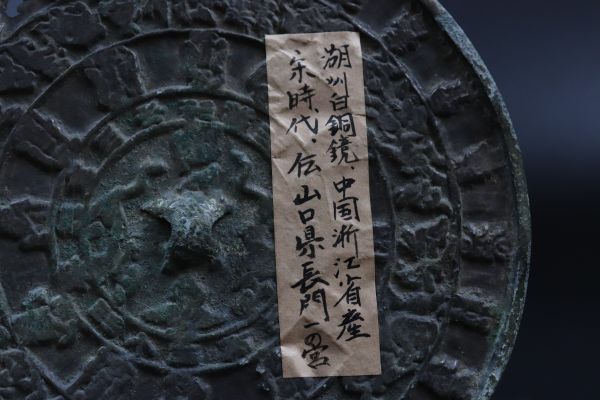 湖州白銅鏡、中国浙江省産
宋時代、伝山口県長門一の宮